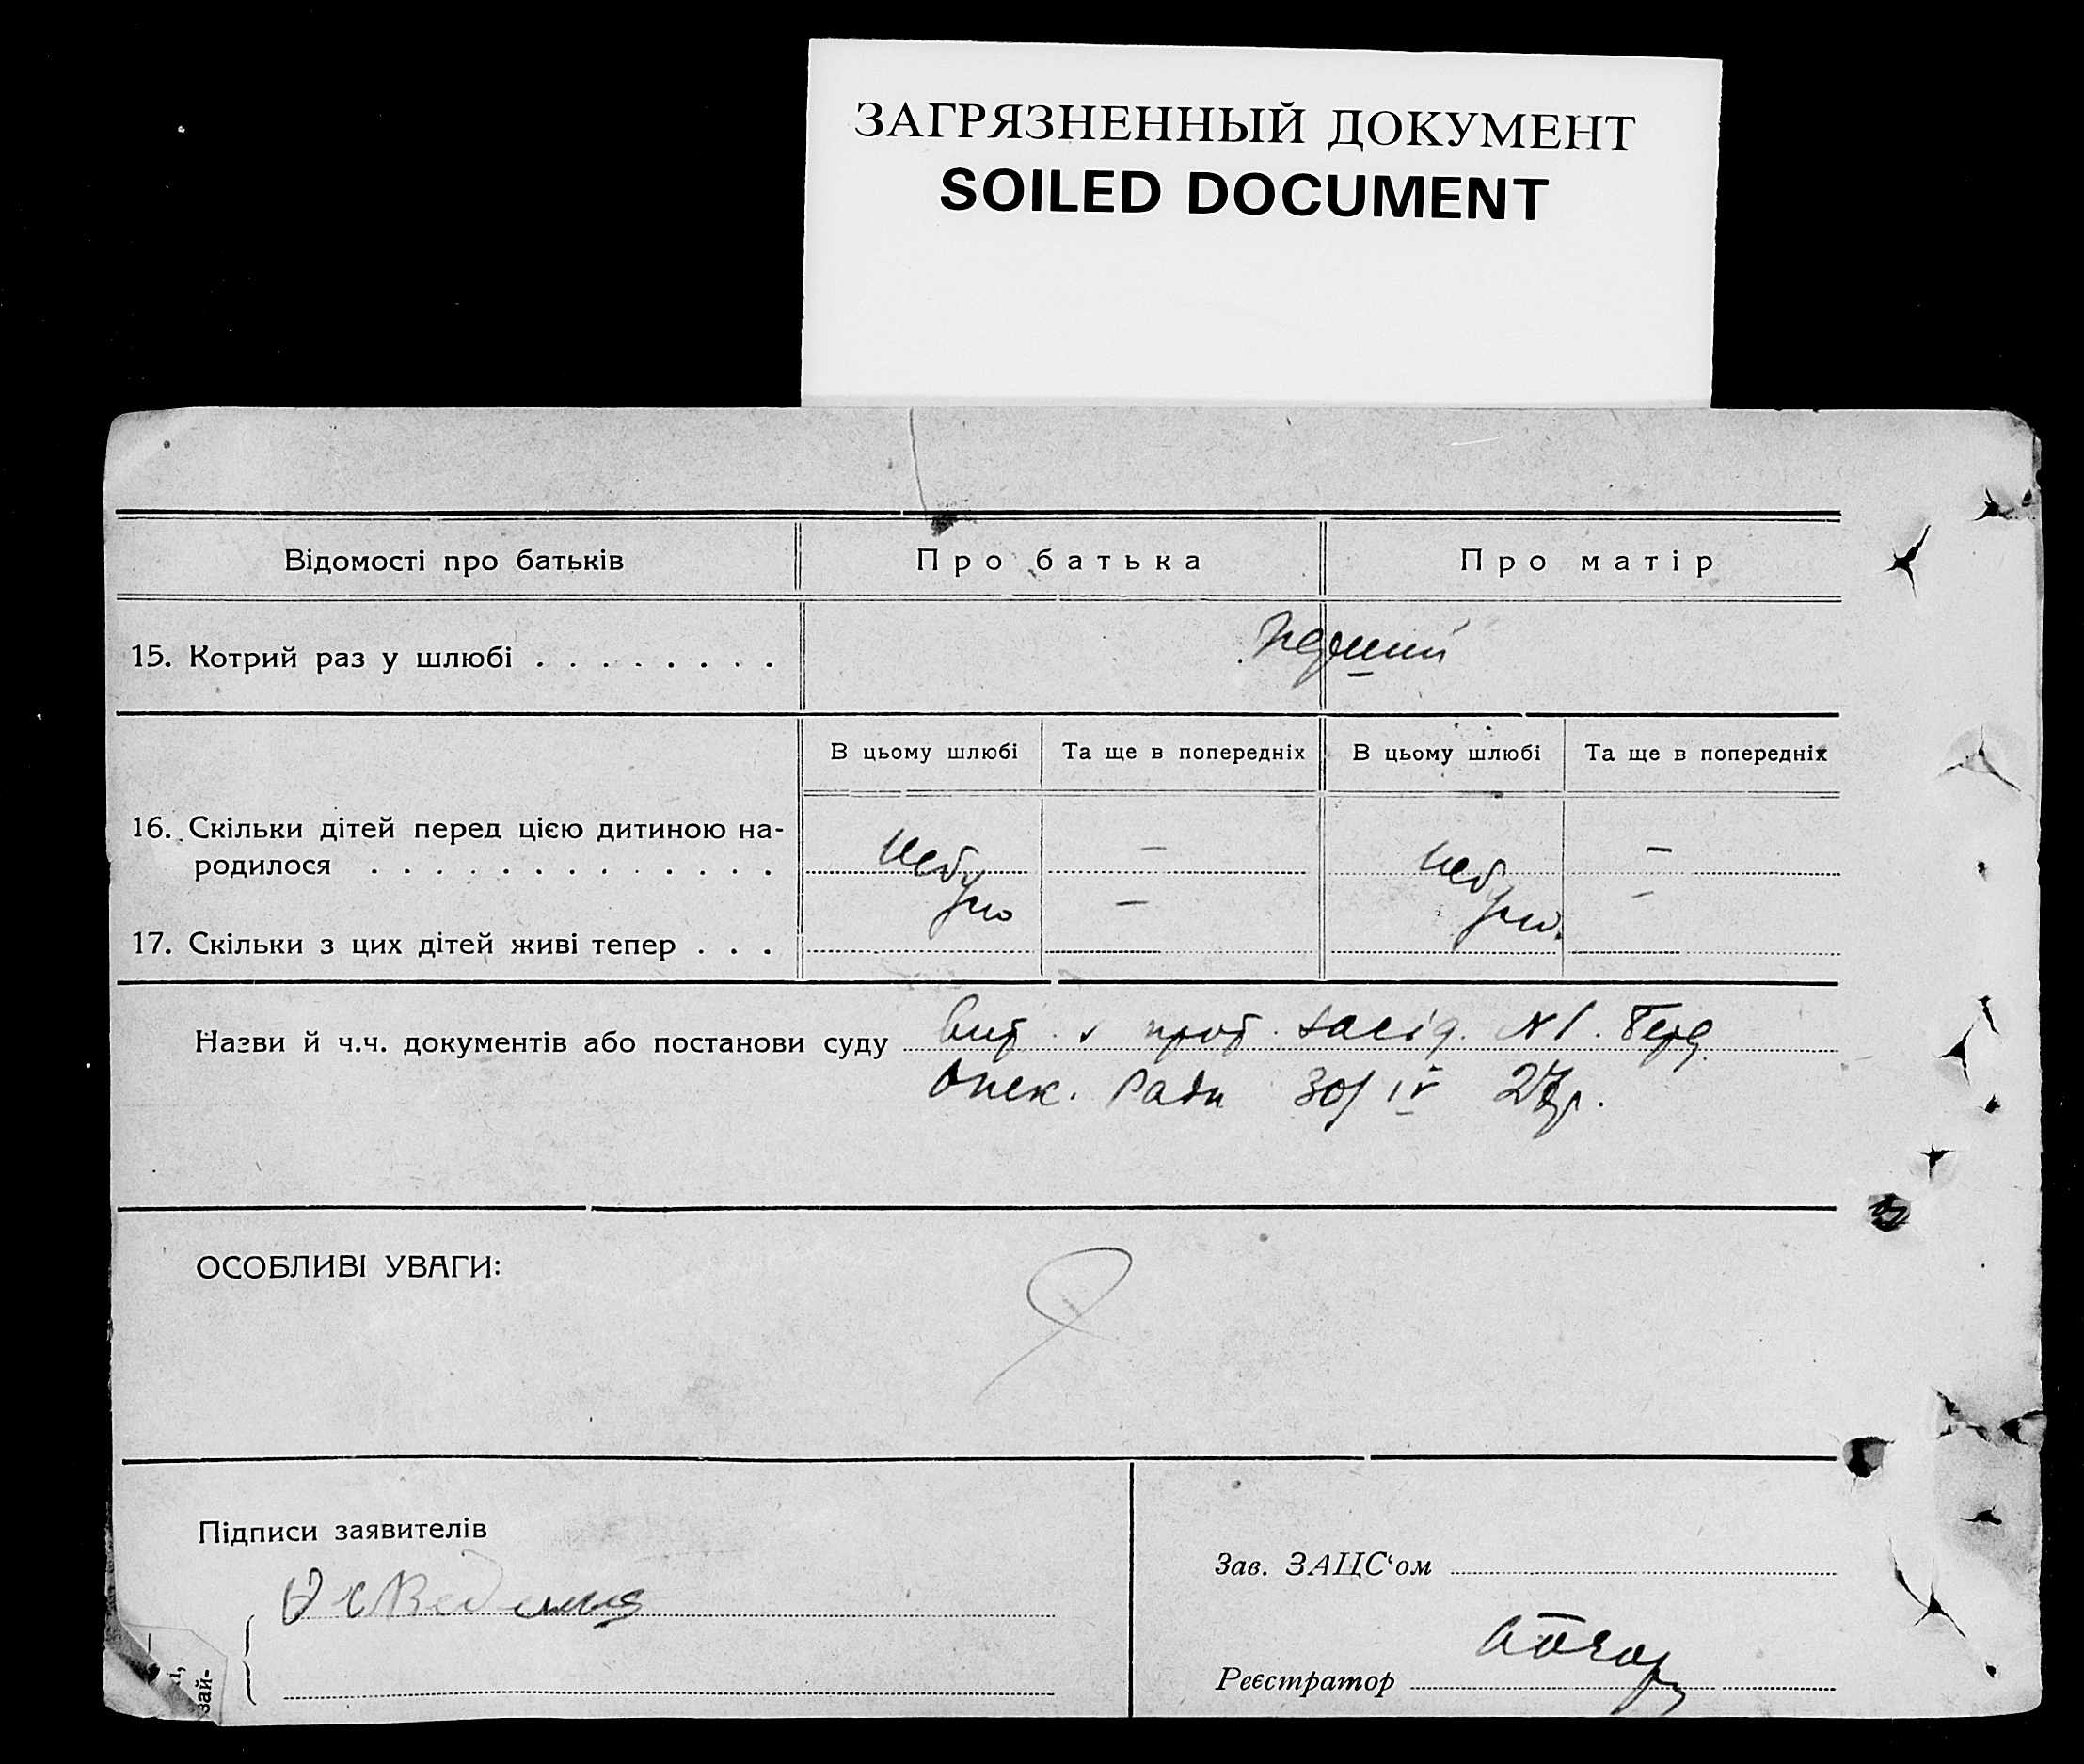 ЗАГРЯЗНЕННЫЙ ДОКУМЕНТ
SOILED DOCUMENT
Відомості про батьків Про батька Про матір
15. Котрий раз у шлюбі . . . . . . . . перший
В цьому шлюбі Та ще в попередніх В цьому шлюбі Та ще в попередніх
16. Скільки дітей перед цією дитиною на-
родилося . . . . . . . . . . . . . небуло — небуло —
17. Скільки з цих дітей живі тепер . . . — —
Назви й ч.ч. документів або постанови суду Вит. з прот. засід. № 1. Берд.
Опек. Ради 30/IV 27р.
ОСОБЛИВІ УВАГИ:
Підписи заявителів
Зав. ЗАЦС‘ом
Реєстратор
і,
зай-